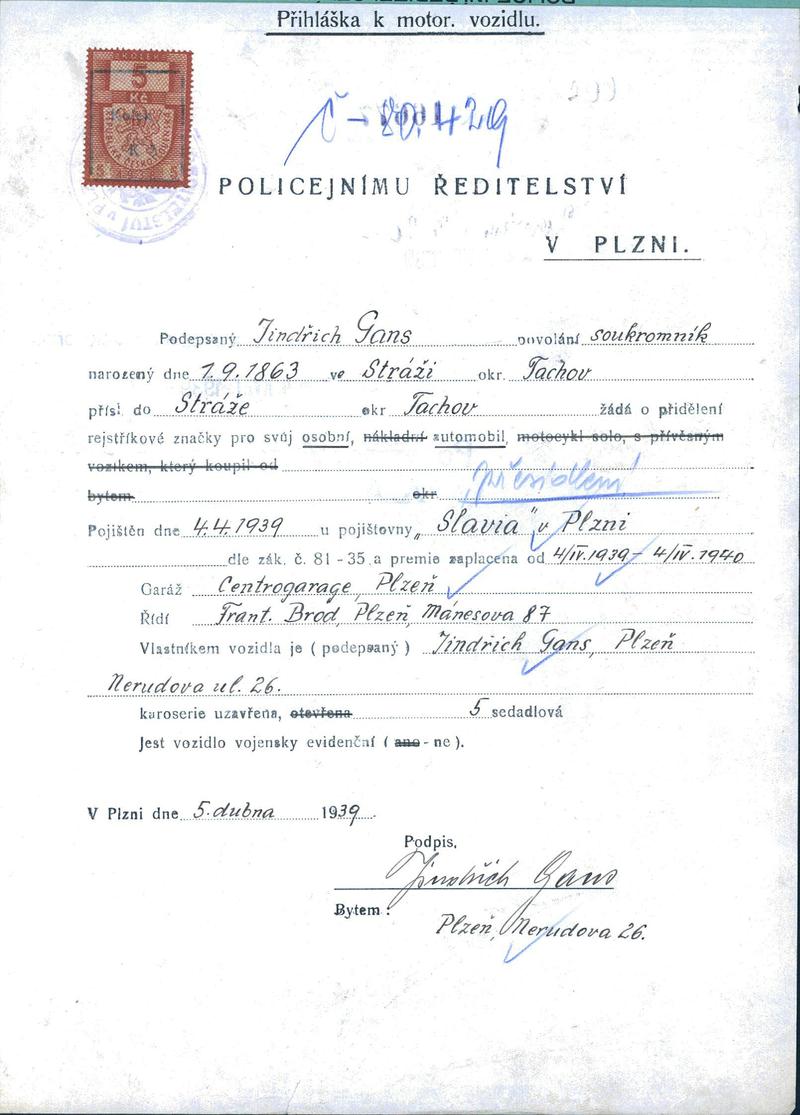 Přihláška k motor. vozidlu.
5
Kč
Č - 80.429
POLICEJNÍMU ŘEDITELSTVÍ
V PLZNI.
Podepsaný Jindřich Gans povolání soukromník
narozený dne 1.9.1863 ve Stráži okr. Tachov
přísl. do Stráže okr Tachov žádá o přidělení
rejstříkové značky pro svůj osobní, nákladní automobil, motocykl solo, s přívěsným
vozíkem, který koupil od
bytem okr „přesídlení“
Pojištěn dne 4.4.1939 u pojišťovny „Slavia“ v Plzni
dle zák. č. 81-35 a premie zaplacena od 4/IV.1939 - 4/IV.1940
Garáž Centrogarage, Plzeň
Řídí Frant. Brod, Plzeň, Mánesova 87
Vlastníkem vozidla je (podepsaný) Jindřich Gans, Plzeň
Nerudova ul. 26.
karoserie uzavřena, otevřena 5 sedadlová
Jest vozidlo vojensky evidenční (ano - ne).
V Plzni dne 5. dubna 1939.
Podpis.
Jindřich Gans
Bytem:
Plzeň, Nerudova 26.